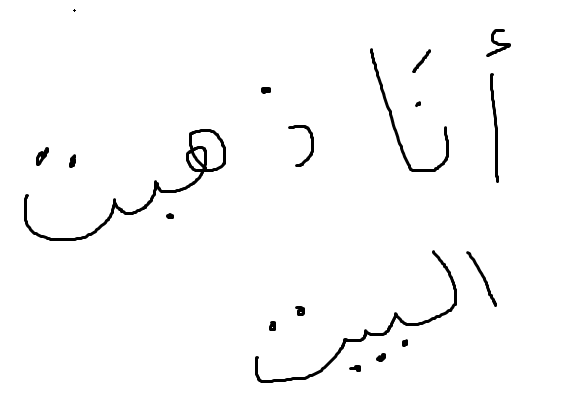 أنَا ذهبت
البيت